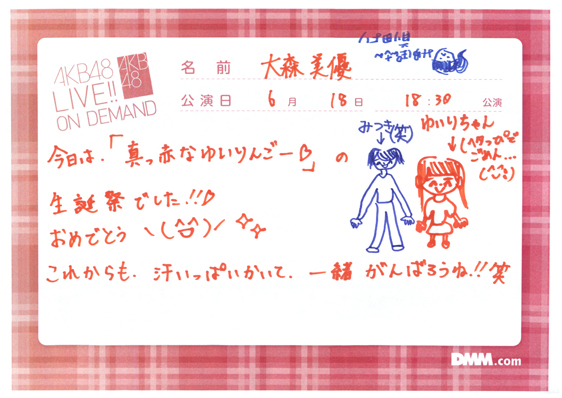 AKB48
LIVE!!
ON DEMAND
AKB
48
名 前 大森美優
公演日 6月 18日 18:30 公演
みつき(笑)
ゆいりちゃん
(ヘタっぴで
ごめん...
今日は、「真っ赤なゆいりんごー♡」の
生誕祭でした!!♡
おめでとう \(^o^)/
これからも、汗いっぱいかいて、一緒がんばろうね!!笑
DMM.com